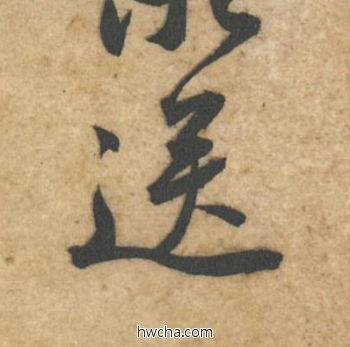 送
hwcha.com